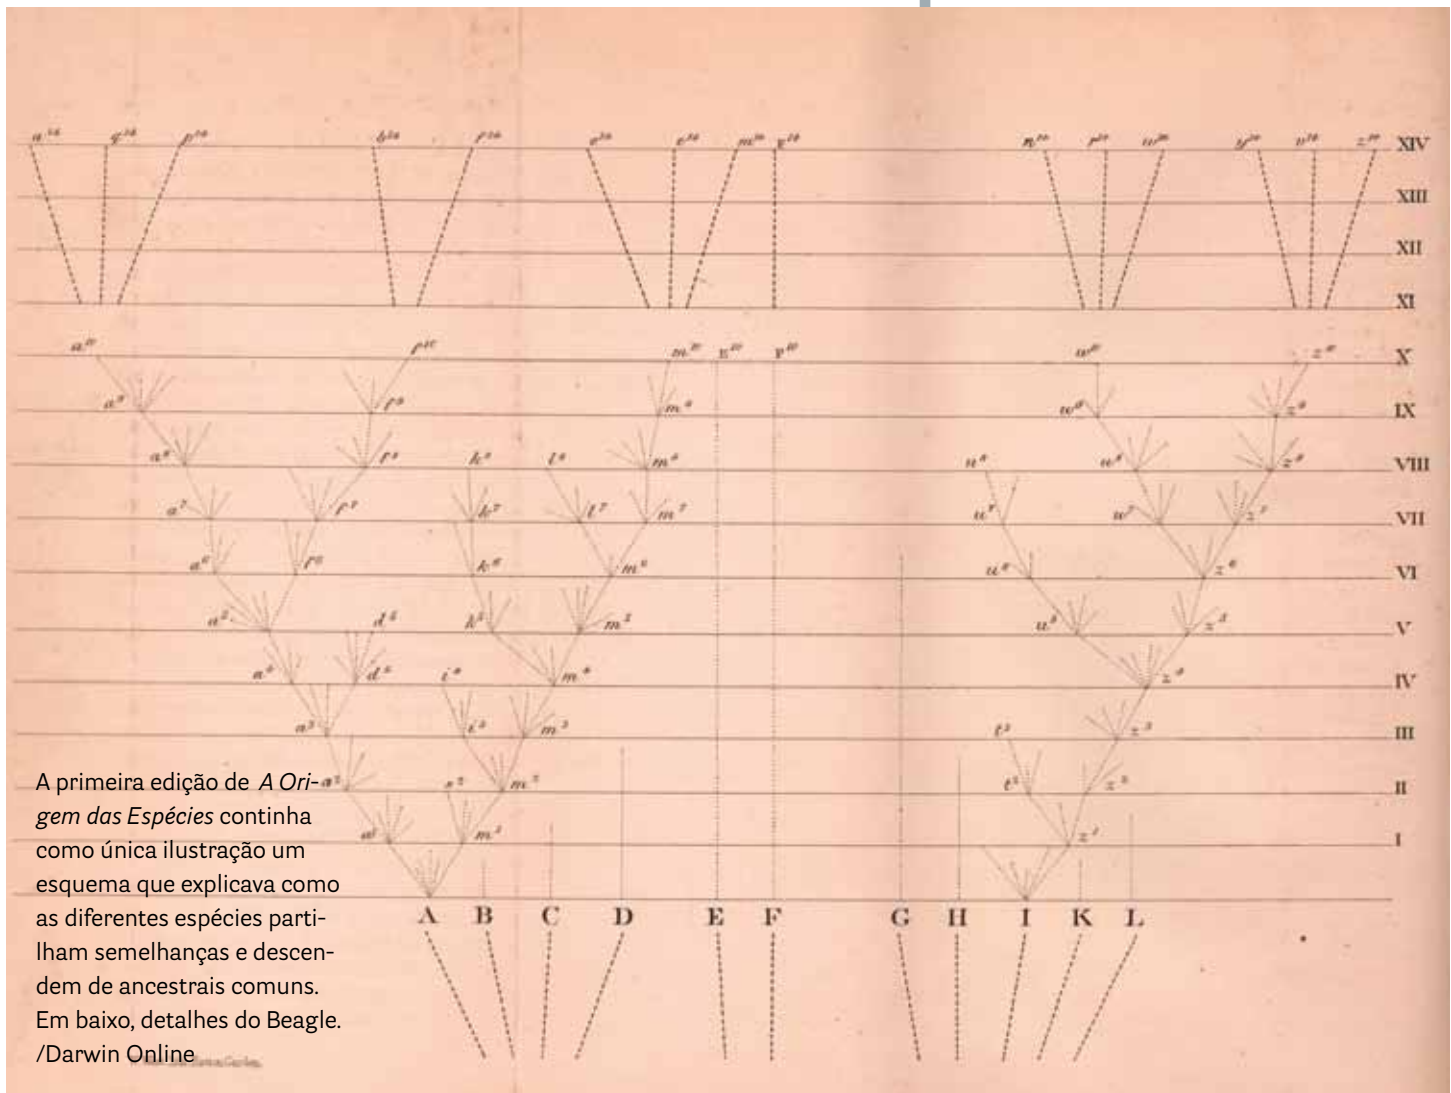 a¹⁴ q¹⁴ p¹⁴ b¹⁴ f¹⁴ o¹⁴ e¹⁴ m¹⁴ F¹⁴ n¹⁴ r¹⁴ w¹⁴ y¹⁴ v¹⁴ z¹⁴ XIV
XIII
XII
XI
a¹⁰ f¹⁰ m¹⁰ E¹⁰ F¹⁰ w¹⁰ z¹⁰ X
a⁹ f⁹ m⁹ w⁹ z⁹ IX
a⁸ f⁸ k⁸ l⁸ m⁸ u⁸ w⁸ z⁸ VIII
a⁷ f⁷ k⁷ l⁷ m⁷ u⁷ w⁷ z⁷ VII
a⁶ f⁶ k⁶ m⁶ u⁶ z⁶ VI
a⁵ d⁵ k⁵ m⁵ u⁵ z⁵ V
a⁴ d⁴ i⁴ m⁴ z⁴ IV
a³ i³ m³ t³ z³ III
a² s² m² t² z² II
a¹ m¹ z¹ I
A B C D E F G H I K L
A primeira edição de A Ori-
gem das Espécies continha
como única ilustração um
esquema que explicava como
as diferentes espécies parti-
lham semelhanças e descen-
dem de ancestrais comuns.
Em baixo, detalhes do Beagle.
/Darwin Online